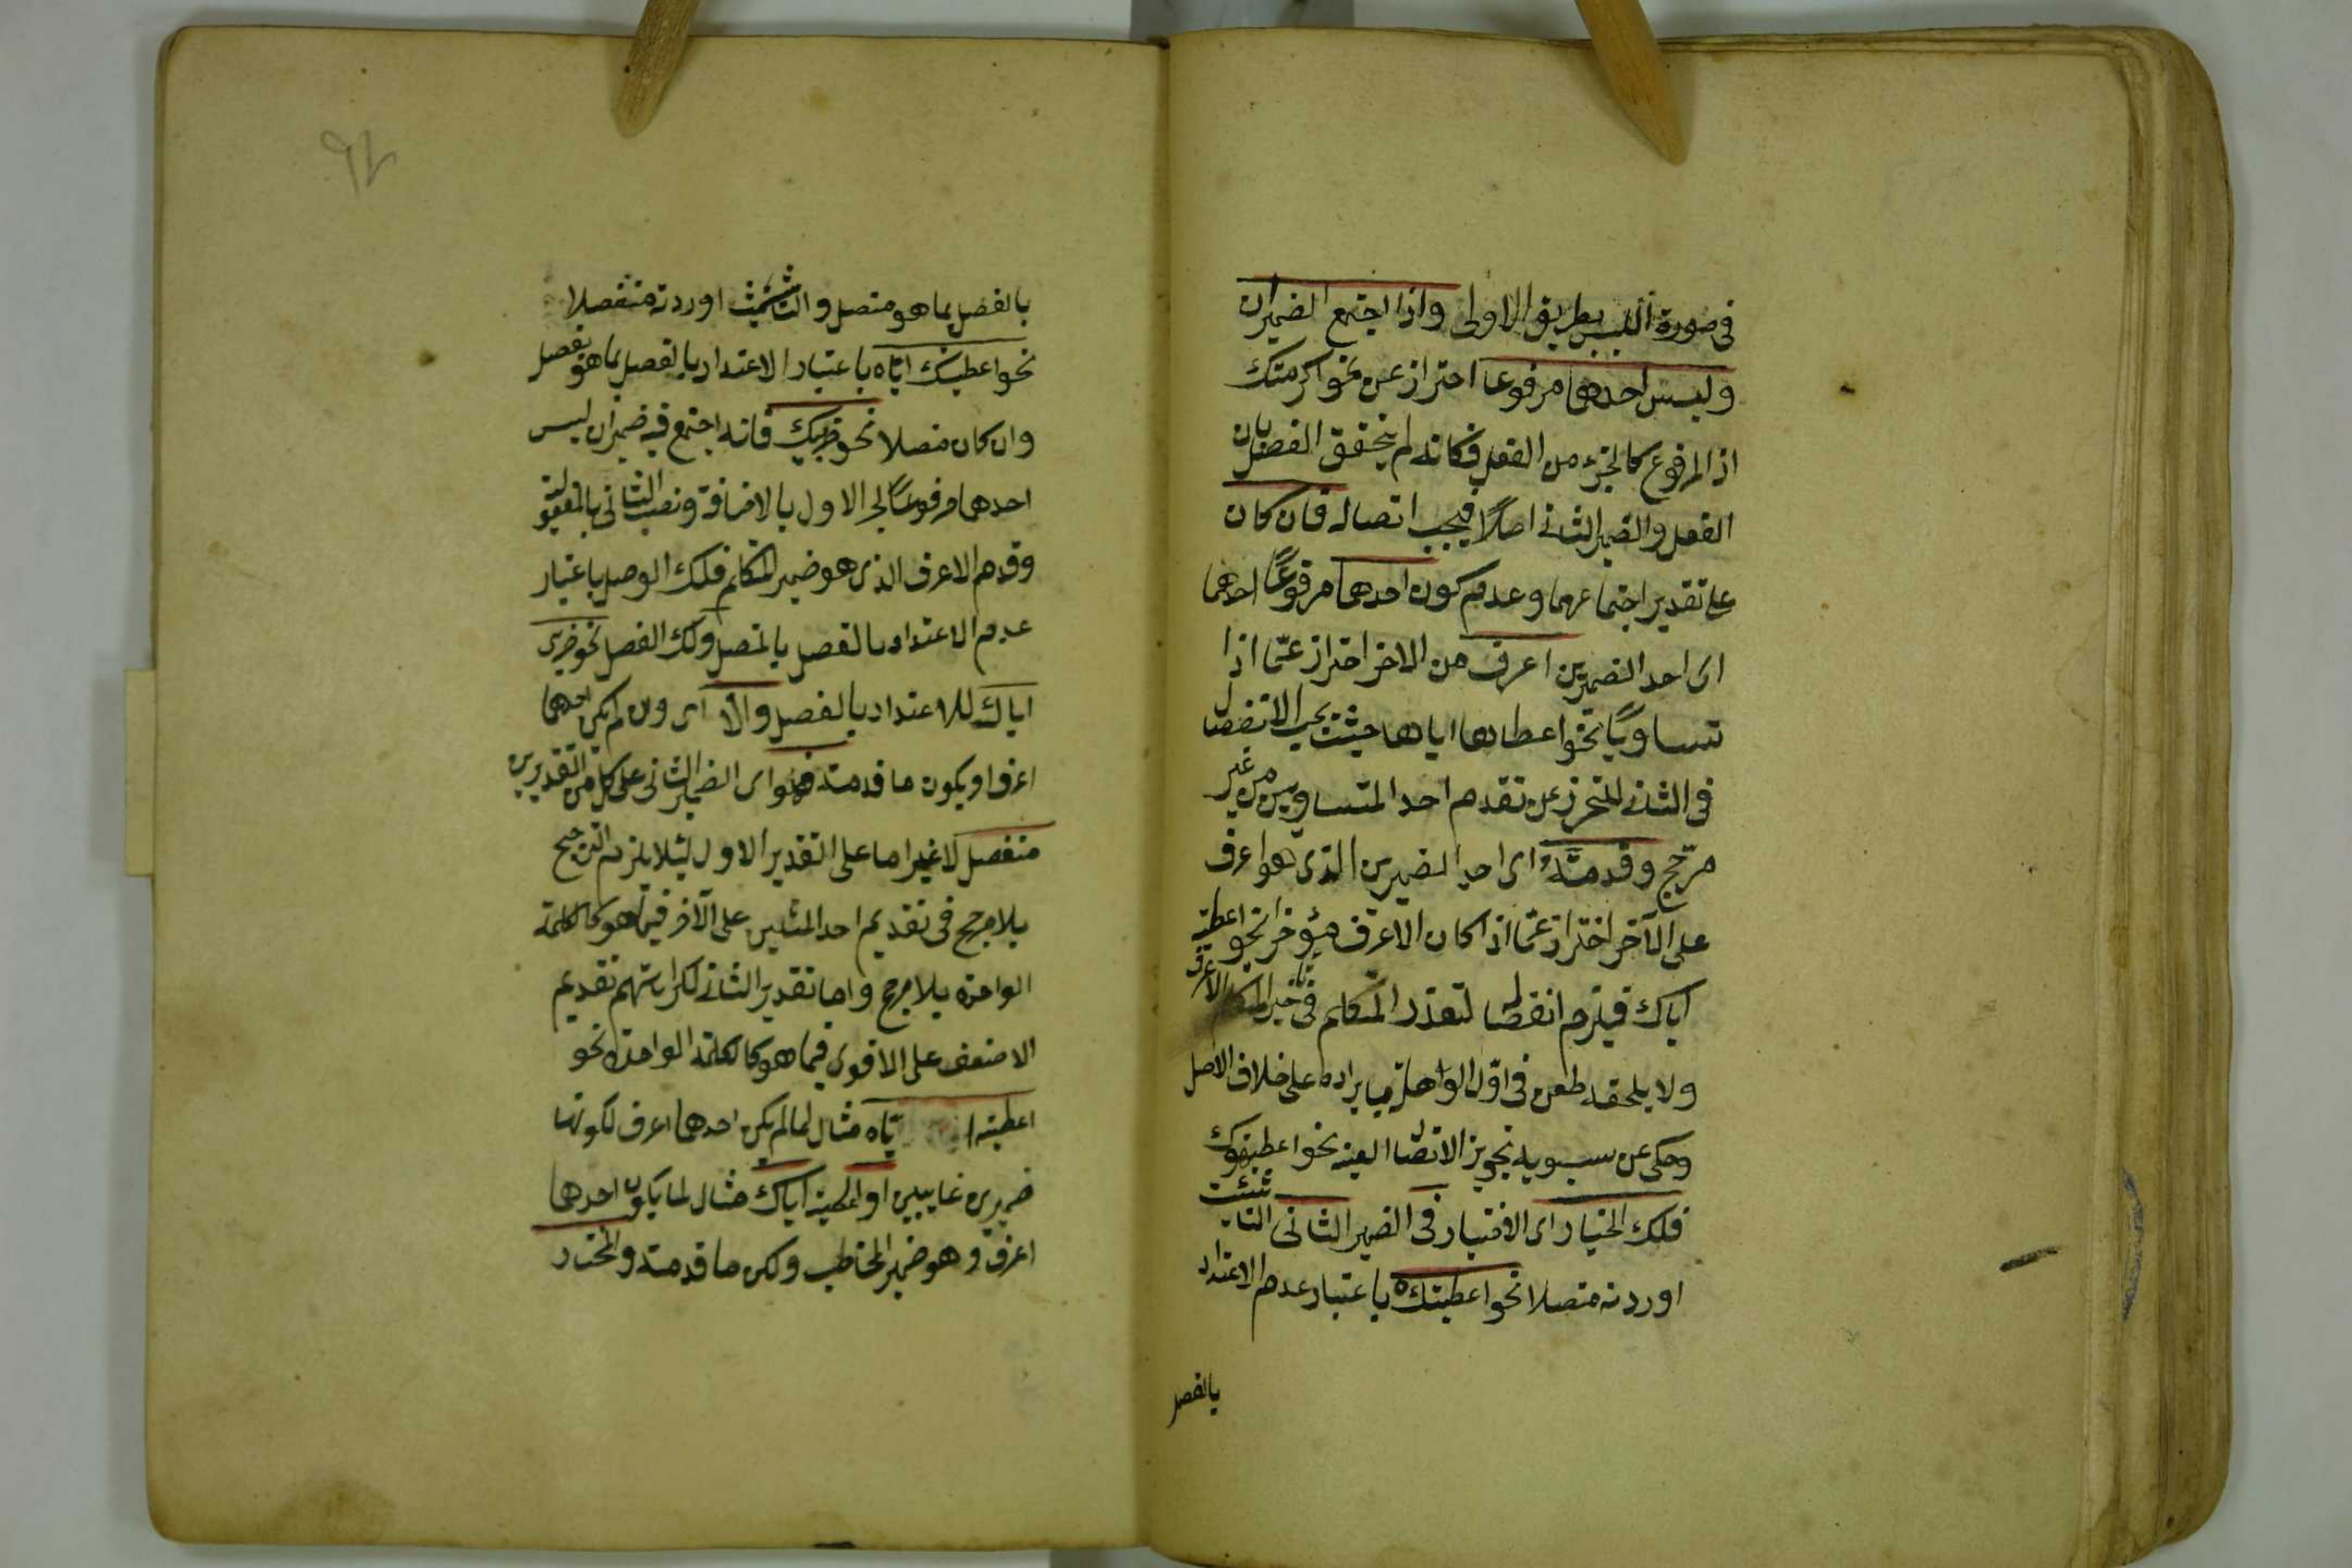 في صورة اللبس بطريق الاولى واذا اجتمع الضميران
وليس احدهما مرفوعا احتراز عن نحو اكرمتك
اذ المرفوع كالجزء من الفعل فكانه لم يتحقق الفصل بين
الفعل والضمير الثاني اصلاً فيجب اتصاله فان كان
على تقدير اجتماعهما وعدم كون احدهما مرفوعاً احدهما
اى احد الضميرين اعرف من الاخر احتراز عمّا اذا
تساويا نحو اعطاها اياها حيث يجب الانفصال
في الثاني للتحرز عن تقدم احد المتساويين من غير
مرّجح وقدمته اى احد الضميرين الذى هو اعرف
على الآخر احتراز عمّا اذا كان الاعرف مؤخرا نحو اعطيته
اياك فيلزم انفصاله لتعذر المتكلم في تأخير الاعرف
ولا يلحقه طعن في اوّل الواهلة بايراده على خلاف الاصل
وحكى عن سيبويه تجويز الاتصال ايضا نحو اعطيتهوك
فلك الخيار اى الاختيار في الضمير الثاني ان شئت
اوردته متصلا نحو اعطيتكه باعتبار عدم الاعتداد
بالفصل
بالفصل بما هو متصل وان شئت اوردته منفصلا
نحو اعطيتك اياه باعتبار الاعتداد بالفصل بما هو بفصل
وان كان متصلا نحو ضربيك فانه اجتمع فيه ضميران ليس
احدهما مرفوعاً لجر الاول بالاضافة ونصب الثاني بالمفعولية
وقدم الاعرف الذى هو ضمير المتكلم فلك الوصل باعتبار
عدم الاعتداد بالفصل بالمتصل ولك الفصل نحو ضربى
اياك للاعتداد بالفصل والا اى وان لم يكن احدهما
اعرف او يكون ما قدمته فهو اى الضمير الثاني على كل من التقديرين
منفصل لا غير اما على التقدير الاول لئلا يلزم الترجيح
بلا مرجح في تقديم احد المثلين على الآخر فيما هو كالكلمة
الواحدة بلا مرجح واما تقدير الثاني لكراهتهم تقديم
الاضعف على الاقوى فيما هو كالكلمة الواحدة نحو
اعطيته اياه مثال لما لم يكن احدهما اعرف لكونهما
ضميرين غايبين او اعطيته اياك مثال لما يكون احدهما
اعرف وهو ضمير المخاطب ولكن ما قدمته والمختار